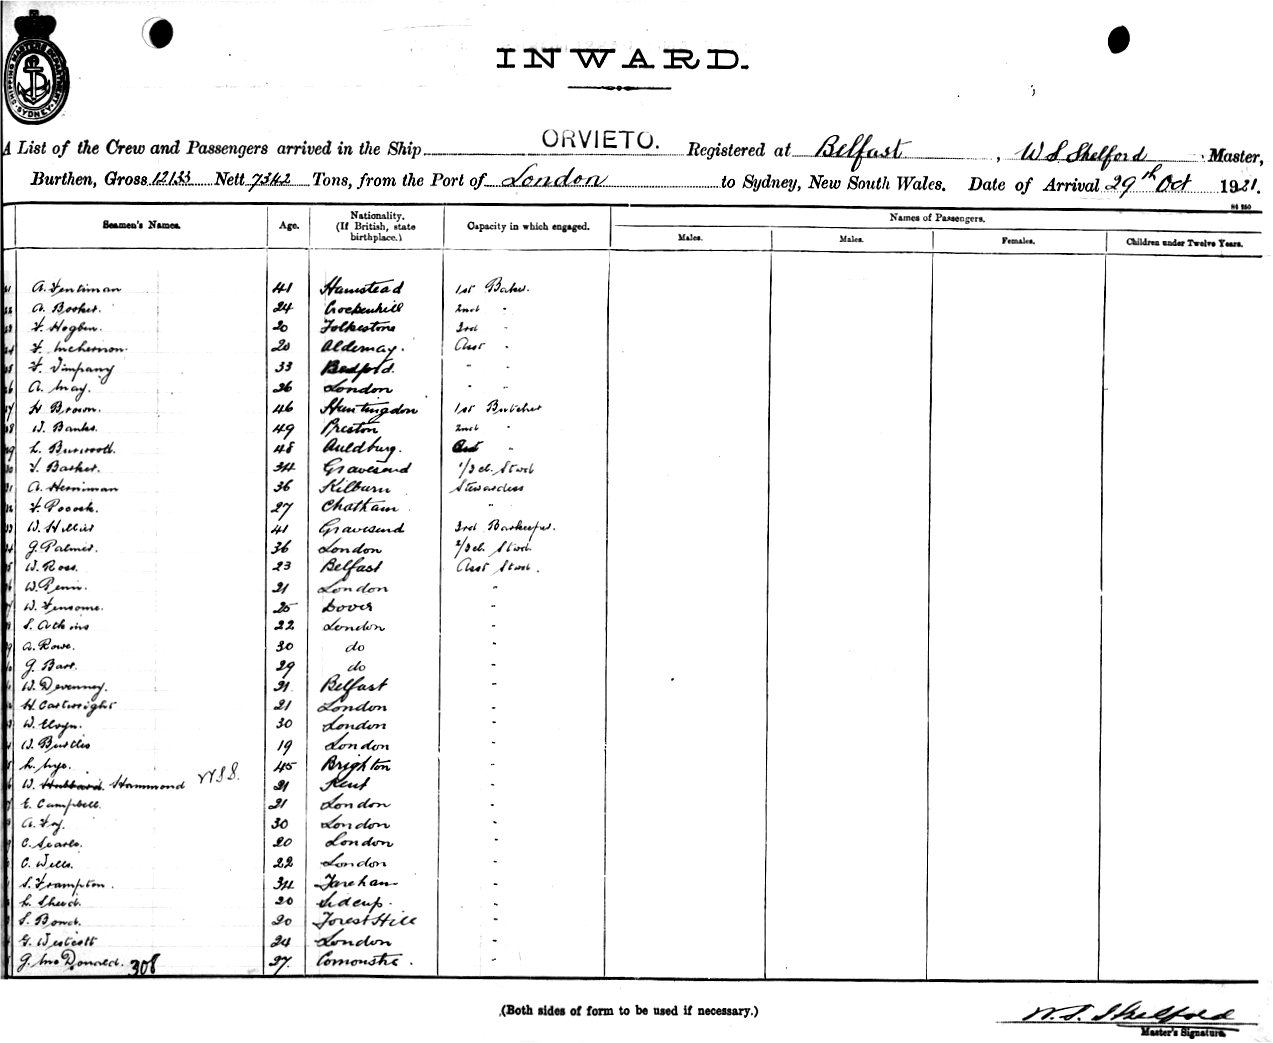 SHIPPING MASTER'S DEPARTMENT SYDNEY
INWARD.
A List of the Crew and Passengers arrived in the Ship ORVIETO. Registered at Belfast, W S Shelford Master,
Burthen, Gross 12133 Nett 7342 Tons, from the Port of London to Sydney, New South Wales. Date of Arrival 29th Oct 1921.
Seamen's Names. Age. Nationality. (If British, state birthplace.) Capacity in which engaged. Names of Passengers.
Males. Males. Females. Children under Twelve Years.
A. Fentiman 41 Hamstead 1st Baker.
A. Booker. 24 Crockenhill 2nd "
F. Hogben. 20 Folkestone 3rd "
F. 20 Aldernay. Asst "
F. Timpany 33 Bedford. " "
A. May. 36 London " "
H Brown. 46 Huntingdon 1st Butcher
W. Banks. 49 Preston 2nd "
L. Burwood. 48 Auldburg. "
F. Barker. 34 Gravesend 1/2 cl. Stwd
A. Herriman 36 Kilburn Stewardess
F. Pocock. 27 Chatham "
W. Hillier 41 Gravesend 3rd Barkeeper.
G. Palmer. 36 London 2/3 cl. Stwd.
W. Ross. 23 Belfast Asst Stwd.
W. Penn. 21 London "
W. Fensome. 25 Dover "
S. Atkins 22 London "
A. Rowe. 30 do "
G. Bart. 29 do "
W. Devenney. 31 Belfast "
H. Cartwright 21 London "
W. 30 London "
W. Burtles 19 London "
L. Nye. 45 Brighton "
W. Hubbard. Hammond WSS. 31 Kent "
E. Campbell. 21 London "
A. Fry. 30 London "
C. Searle. 20 London "
C. Wells. 22 London "
S. Frampton. 34 Fareham "
L. Sherd. 20 Sidcup. "
S. Bond. 20 Forest Hill "
G. Westcott 24 London "
G. McDonald. 308 27. "
(Both sides of form to be used if necessary.)
W. S. Shelford
Master's Signature.